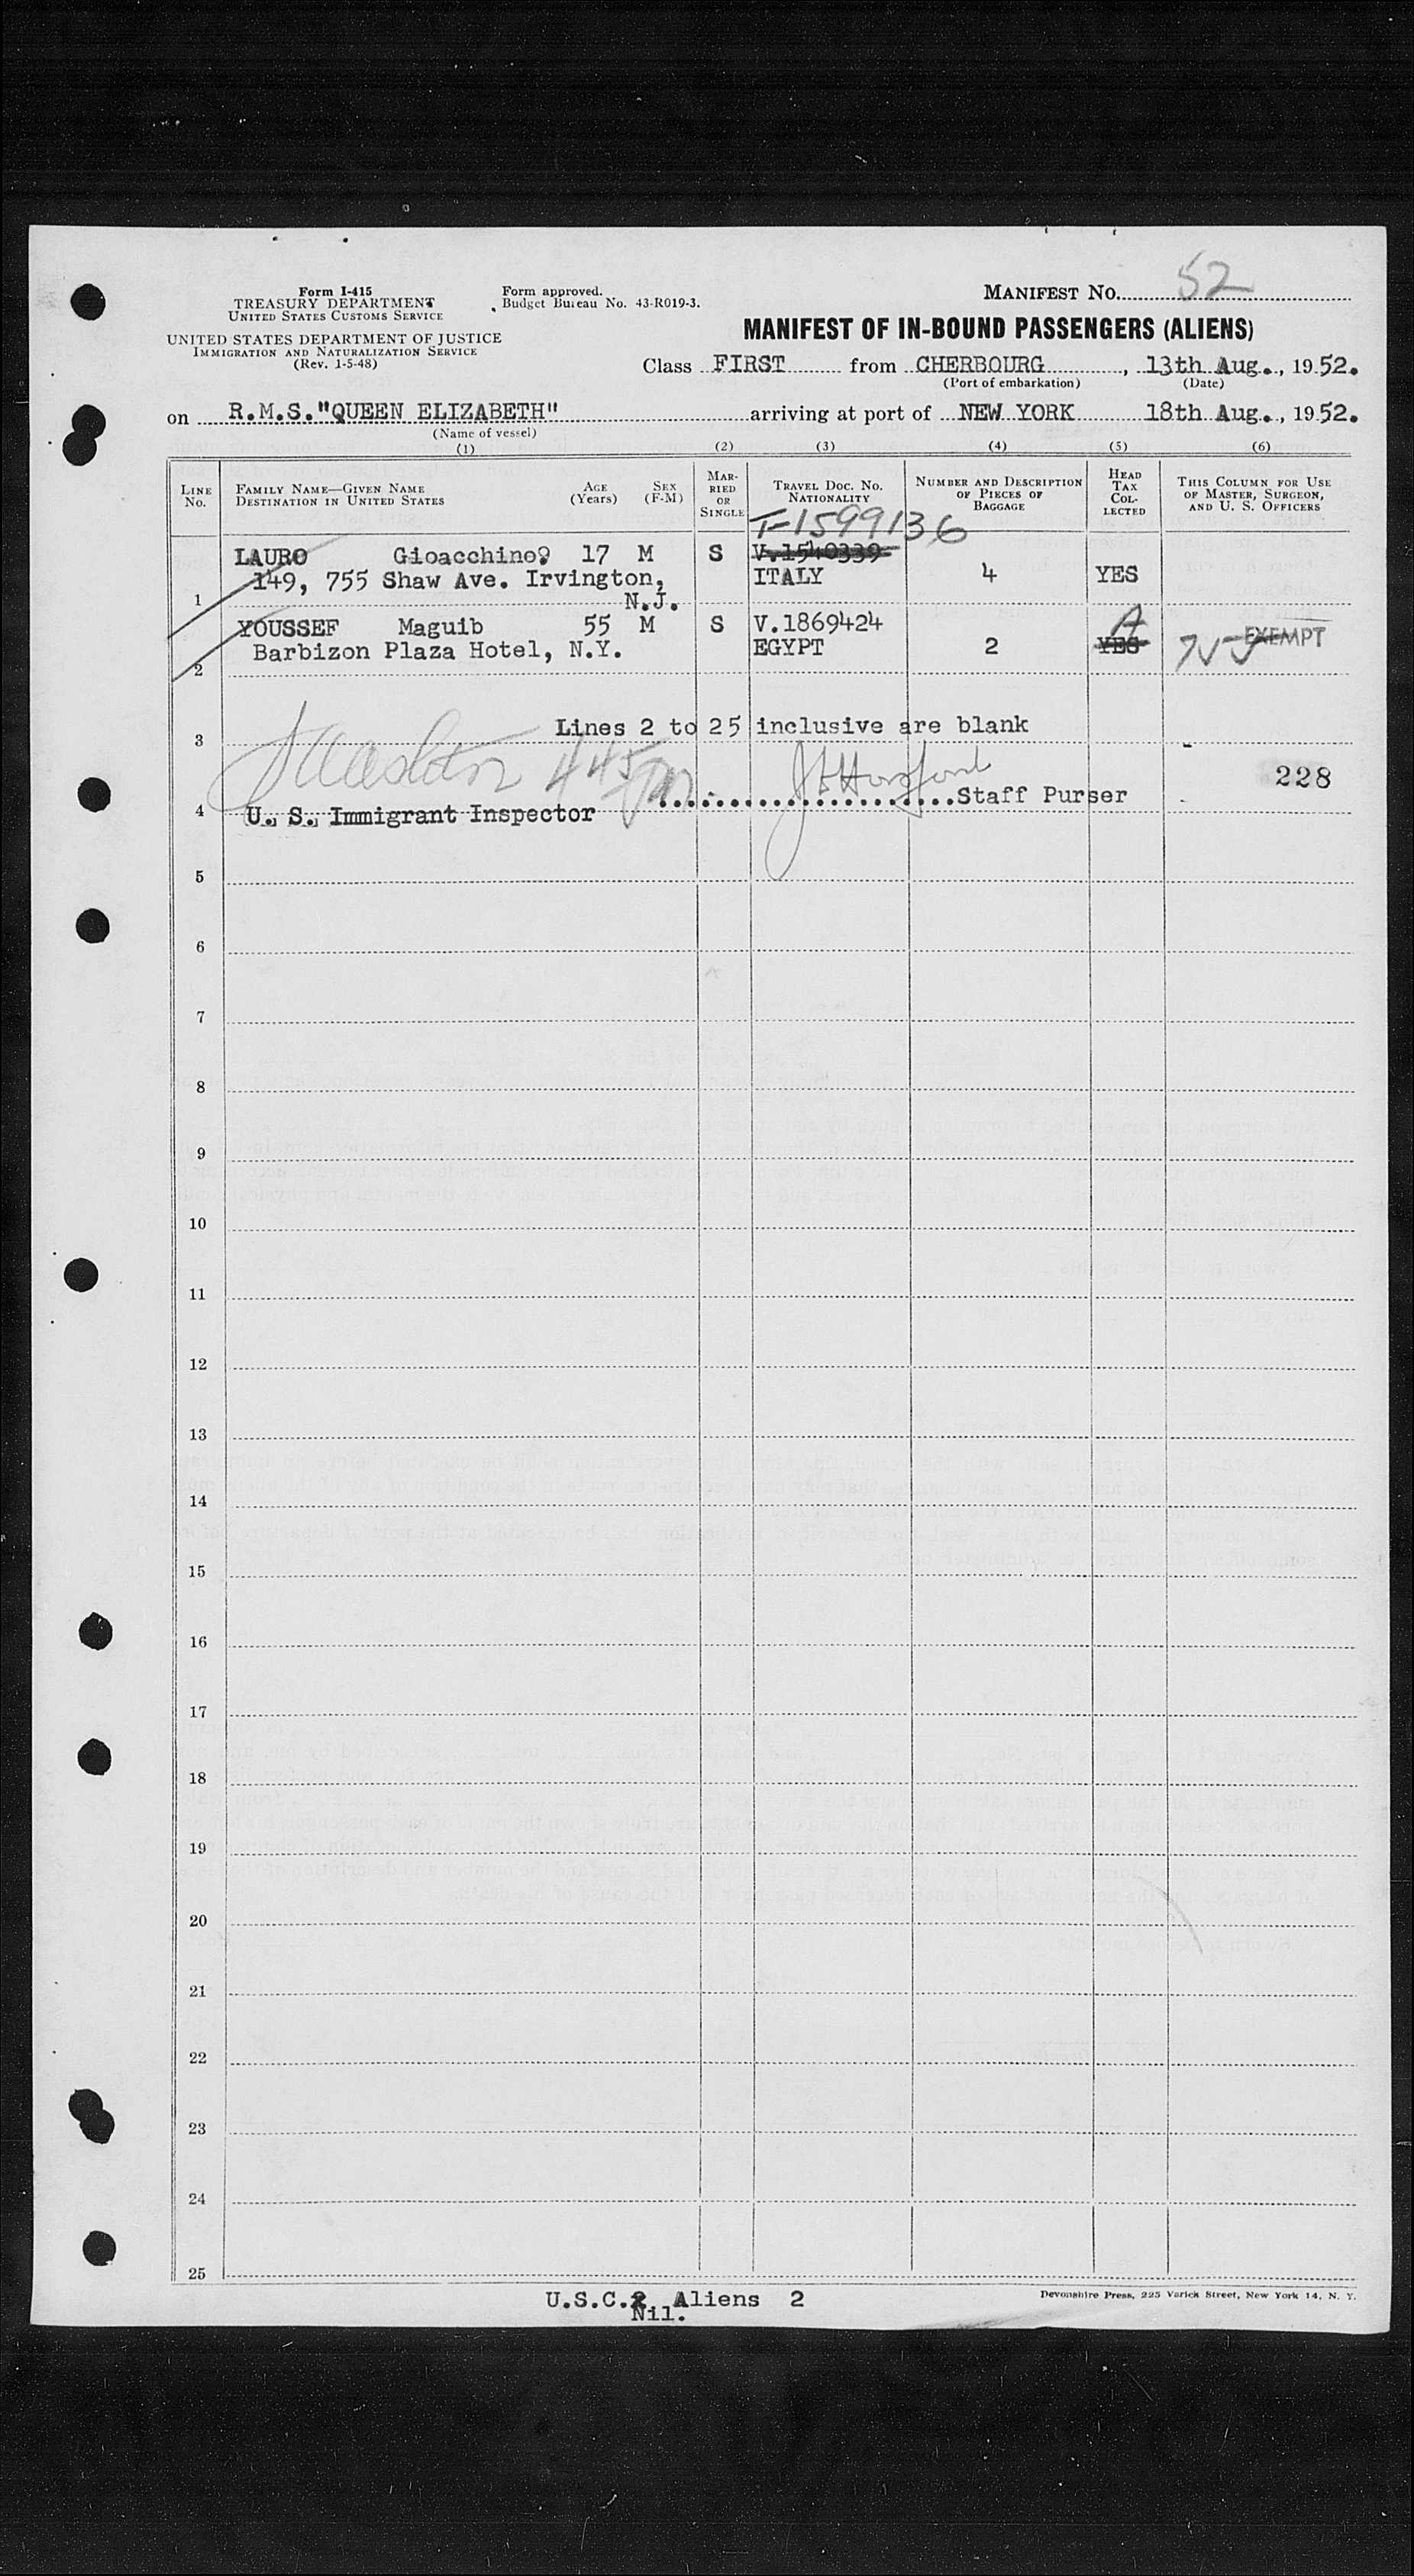 Form I-415
TREASURY DEPARTMENT
UNITED STATES CUSTOMS SERVICE
UNITED STATES DEPARTMENT OF JUSTICE
IMMIGRATION AND NATURALIZATION SERVICE
(Rev. 1-5-48)
Form approved.
Budget Bureau No. 43-R019-3.
MANIFEST NO. 52
MANIFEST OF IN-BOUND PASSENGERS (ALIENS)
Class FIRST from CHERBOURG, 13th Aug., 1952.
(Port of embarkation) (Date)
on R.M.S."QUEEN ELIZABETH" arriving at port of NEW YORK 18th Aug., 1952.
(Name of vessel)
(1) (2) (3) (4) (5) (6)
LINE No.
FAMILY NAME—GIVEN NAME DESTINATION IN UNITED STATES
AGE (Years)
SEX (F-M)
MARRIED OR SINGLE
TRAVEL DOC. NO. NATIONALITY
NUMBER AND DESCRIPTION OF PIECES OF BAGGAGE
HEAD TAX COLLECTED
THIS COLUMN FOR USE OF MASTER, SURGEON, AND U. S. OFFICERS
T-1599136
LAURO Gioacchino 17 M S V.1540339
149, 755 Shaw Ave. Irvington, ITALY 4 YES
1 N.J.
YOUSSEF Maguib 55 M S V.1869424 A
Barbizon Plaza Hotel, N.Y. EGYPT 2 YES EXEMPT
2
Lines 2 to 25 inclusive are blank
3
445pm 228
....................Staff Purser
4 U. S. Immigrant Inspector
5
6
7
8
9
10
11
12
13
14
15
16
17
18
19
20
21
22
23
24
25
U.S.C. Aliens 2
Nil.
Devonshire Press, 225 Varick Street, New York 14, N. Y.